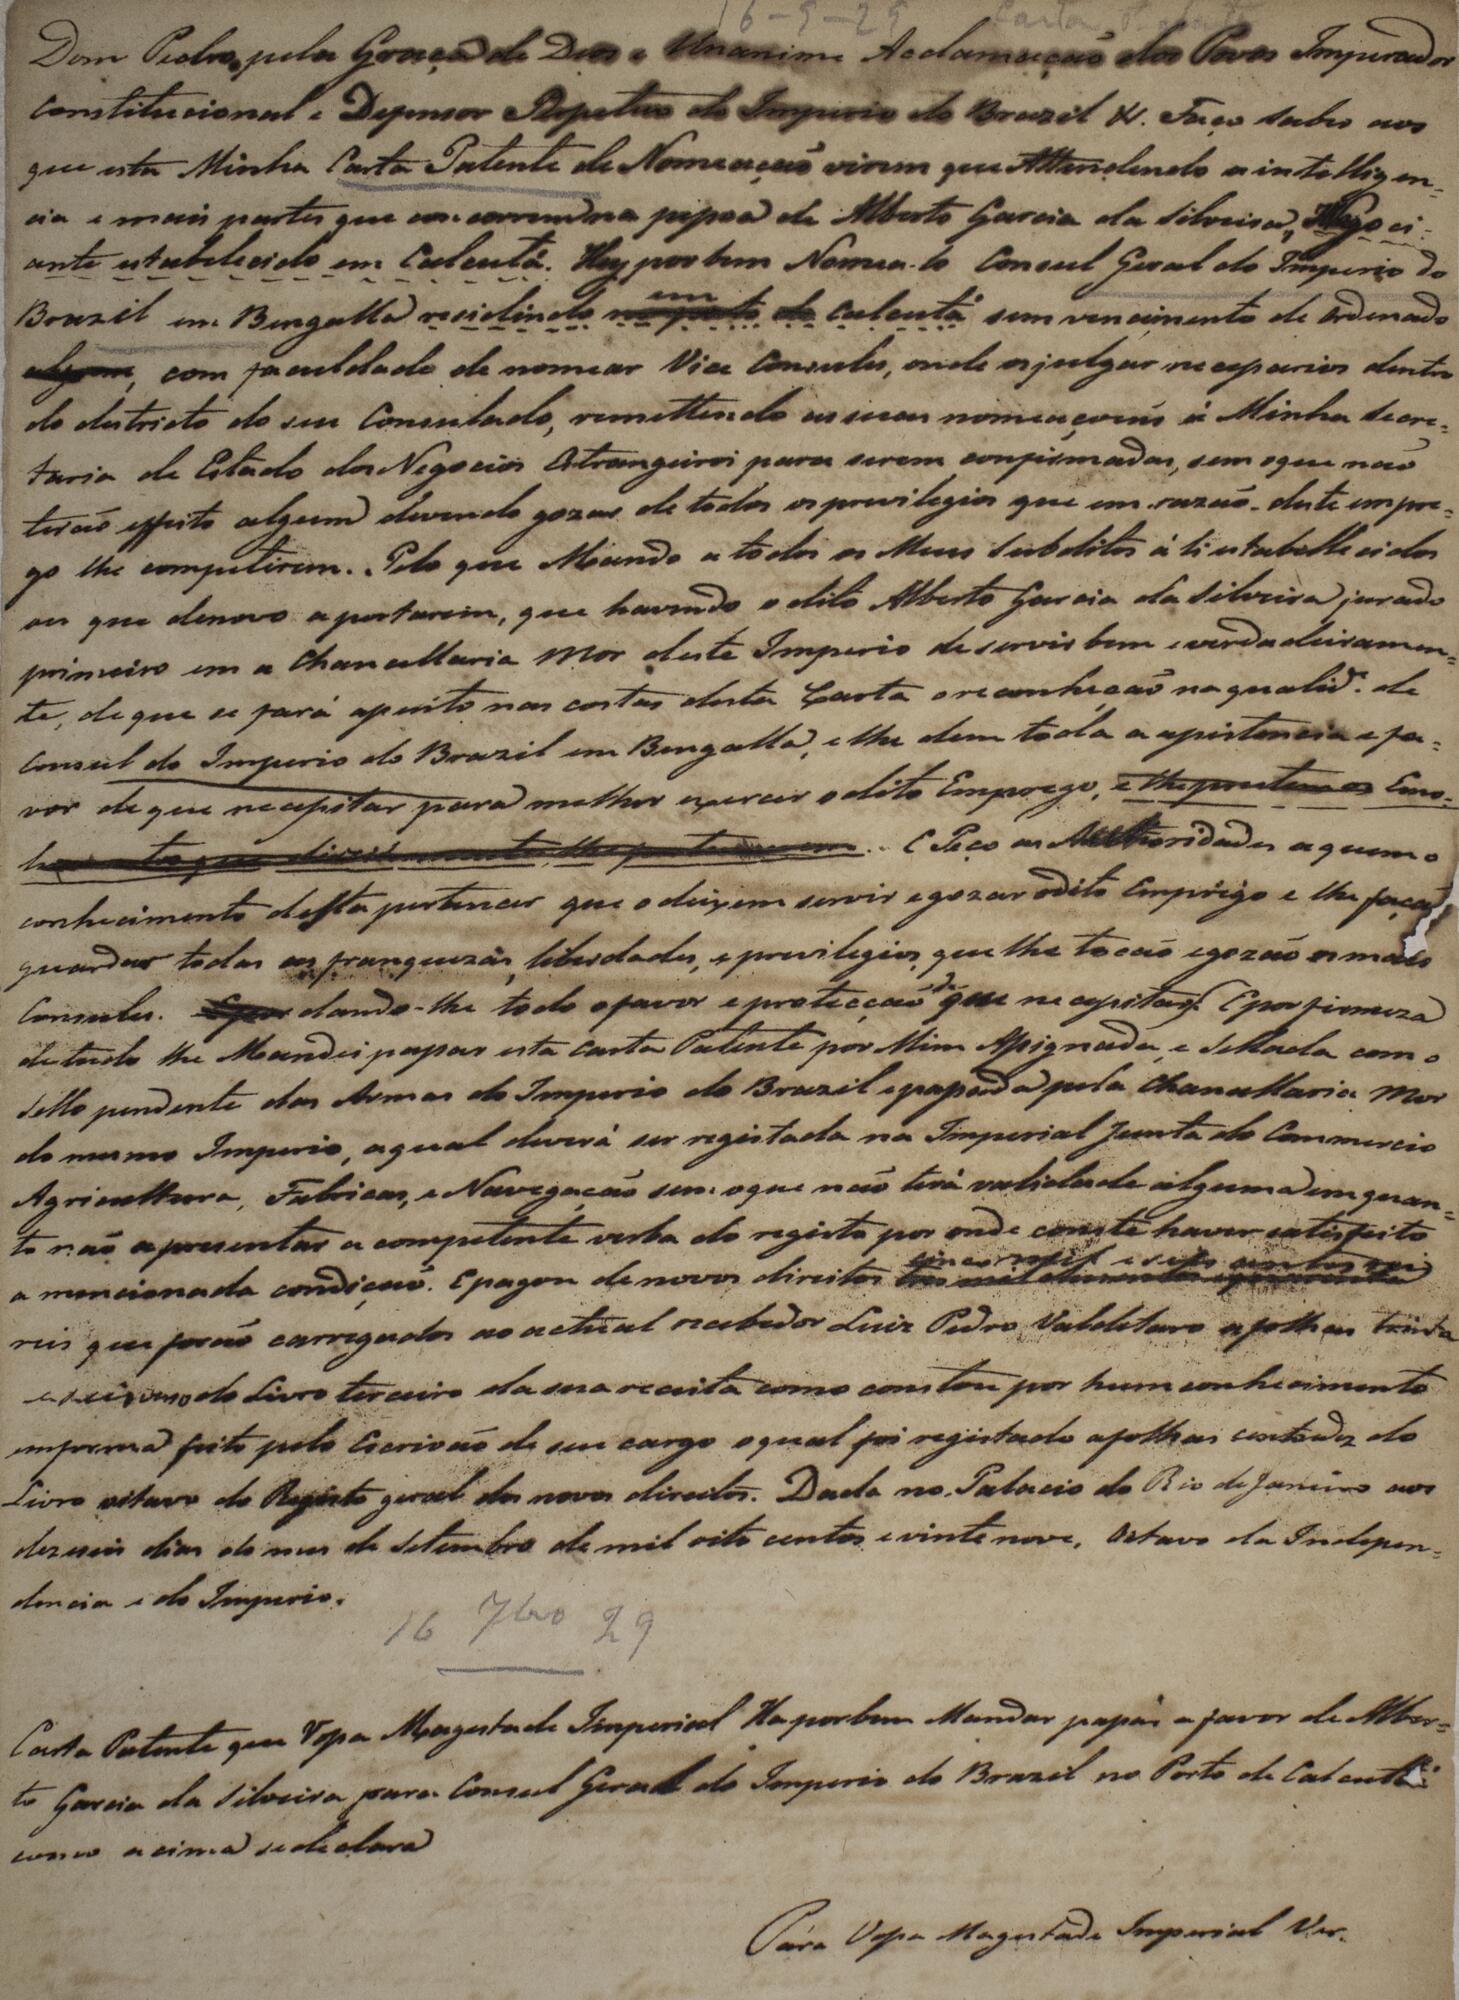 16-9-29 Carta Patente
Dom Pedro, pela Graça de Deos e Unanime Acclamação dos Povos Imperador
Constitucional e Defensor Perpetuo do Imperio do Brazil &. Faço saber aos
que esta Minha Carta Patente de Nomeação virem que Attendendo a intelligen-
cia e mais partes que concorrem na pessoa de Alberto Garcia da Silveira, Negoci-
ante estabelecido em Calcutá. Hey por bem Nomea-lo Consul Geral do Imperio do
Brazil em Bengalla residindo no porto de em Calcutá sem vencimento de Ordenado
algum, com faculdade de nomear Vice Consules, onde os julgar necessarios dentro
do districto do seu Consulado, remettendo as suas nomeaçoens á Minha Secre-
taria de Estado dos Negocios Estrangeiros para serem confirmadas, sem o que não
terão effeito algum devendo gozar de todos os previlegios que em razão deste empre-
go lhe competirem. Pelo que Mando a todos os Meus Subditos á li estabellecidos
ou que denovo aportarem, que havendo o dito Alberto Garcia da Silveira jurado
primeiro em a Chancellaria Mor deste Imperio de servir bem e verdadeiramen-
te, de que se fará assento nas costas desta Carta o reconheção na qualid.e de
Consul do Imperio do Brazil em Bengalla, e lhe dem toda a assistencia e fa-
vor de que necessitar para melhor exercer o dito Emprego, e lhe prestem os Emo-
lumentos que direitamente lhe pertencerem. E Peço as Authoridades a quem o
conhecimento desta pertencer que o deixem servir e gozar o dito Emprêgo e lhe facão
guardar todas as franquezas, liberdades, e previlegios, que lhe tocão e gozão os mais
Consules. E por dando-lhe todo o favor e protecção de que necessitar. E por firmeza
de tudo lhe Mandei passar esta Carta Patente por Mim Assignada, e Sellada com o
Sello pendente das Armas do Imperio do Brazil e passada pela Chancellaria Mor
do mesmo Imperio, a qual deverá ser registada na Imperial Junta do Commercio
Agricultura, Fabricas, e Navegação sem o que não terá validade alguma em quan-
to não apresentar a competente verba do registo por onde conste haver satisfeito
a mencionada condição. E pagou de novos direitos tres mil duzentos e quarenta cinco mil e seis centos reis
reis que forão carregados ao actual recebedor Luiz Pedro Valdetaro a folhas trinta
e seis verso do Livro terceiro da sua receita como constou por hum conhecimento
em forma feito pelo Escrivão de seu cargo o qual foi registado a folhas cento e dez do
Livro oitavo do Registo geral dos novos direitos. Dada no Palacio do Rio de Janeiro aos
dezeseis dias do mes de Setembro de mil oito centos e vinte nove, Octavo da Indepen-
dencia e do Imperio.
16 7bro 29
Carta Patente que Vossa Magestade Imperial Ha por bem Mandar passar a favor de Alber-
to Garcia da Silveira para Consul Geral do Imperio do Brazil no Porto de Calcutá
como acima se declara
Pára Vossa Magestade Imperial Ver.